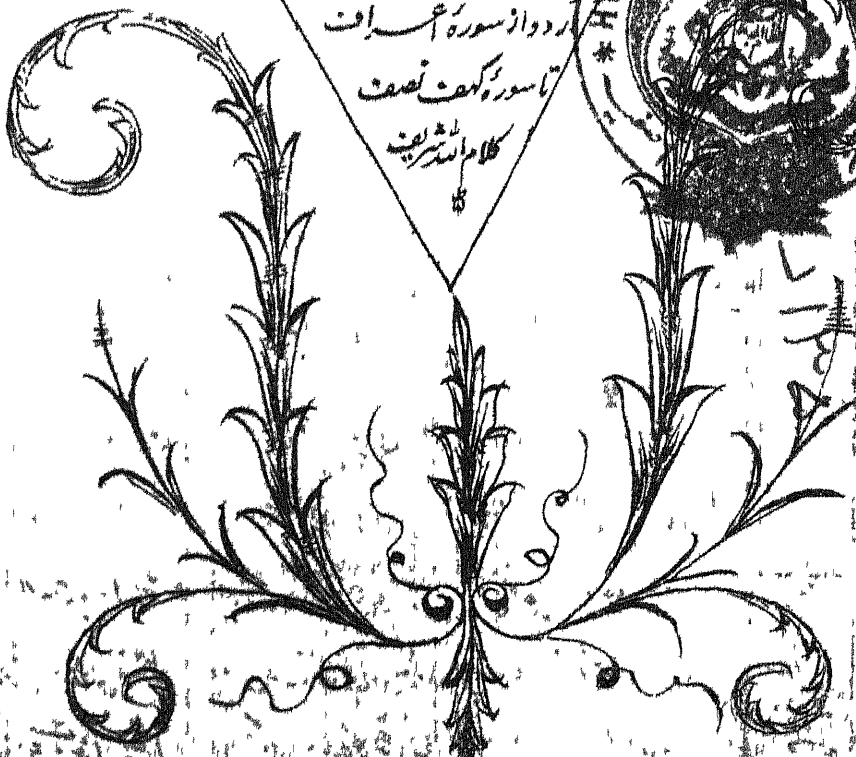 اردو از سورۂ اعراف
تا سورۂ کہف نصف
کلام اللہ شریف